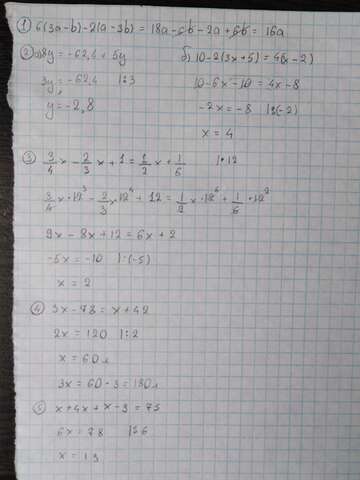 ① 6(3a-b)-2(a-3b) = 18a-6b-2a+6b = 16a
② а) 8y = -62,4 + 5y б) 10-2(3x+5) = 4(x-2)
3y = -62,4 |:3 10-6x-10 = 4x-8
y = -2,8 -2x = -8 |:(-2)
x = 4
③ 3/4x - 2/3x + 1 = 1/2x + 1/6 |·12
3/4x·12³ - 2/3x·12⁴ + 12 = 1/2x·12⁶ + 1/6·12²
9x - 8x + 12 = 6x + 2
-5x = -10 |:(-5)
x = 2
④ 3x - 78 = x + 42
2x = 120 |:2
x = 60л
3x = 60·3 = 180л
⑤ x + 4x + x - 3 = 75
6x = 78 |:6
x = 13